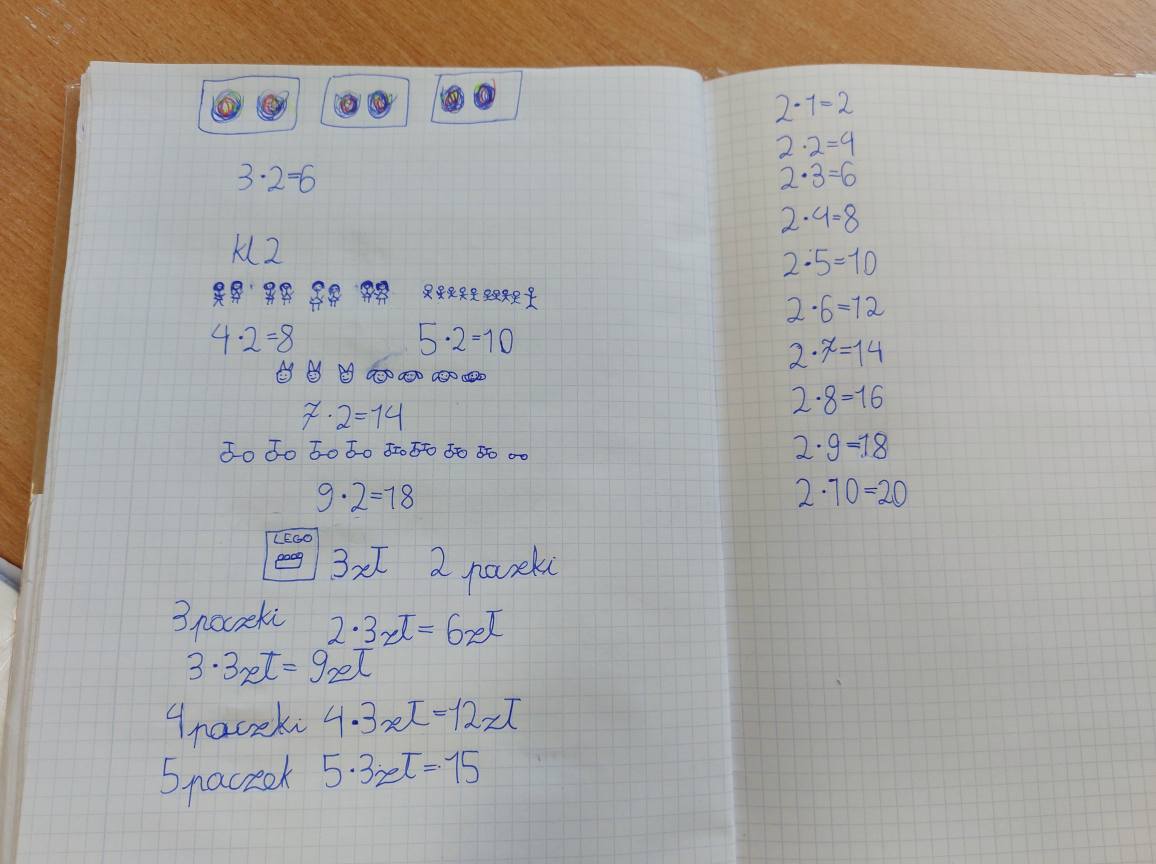 3·2=6
kl 2
4·2=8 5·2=10
7·2=14
9·2=18
LEGO
3zł 2 paczki
3 paczki 2·3zł= 6zł
3·3zł= 9zł
4 paczki 4·3zł=12zł
5 paczek 5·3zł=15
2·1=2
2·2=4
2·3=6
2·4=8
2·5=10
2·6=12
2·7=14
2·8=16
2·9=18
2·10=20